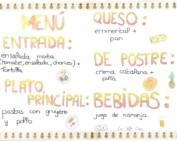 MENÚ
ENTRADA:
ensalada mixta
(tomate, ensalada, chorizo) +
tortilla
PLATO
PRINCIPAL:
pastas con gruyere
y pollo
QUESO:
emmental +
pan
DE POSTRE:
crema catalana +
BEBIDAS:
jugo de naranja